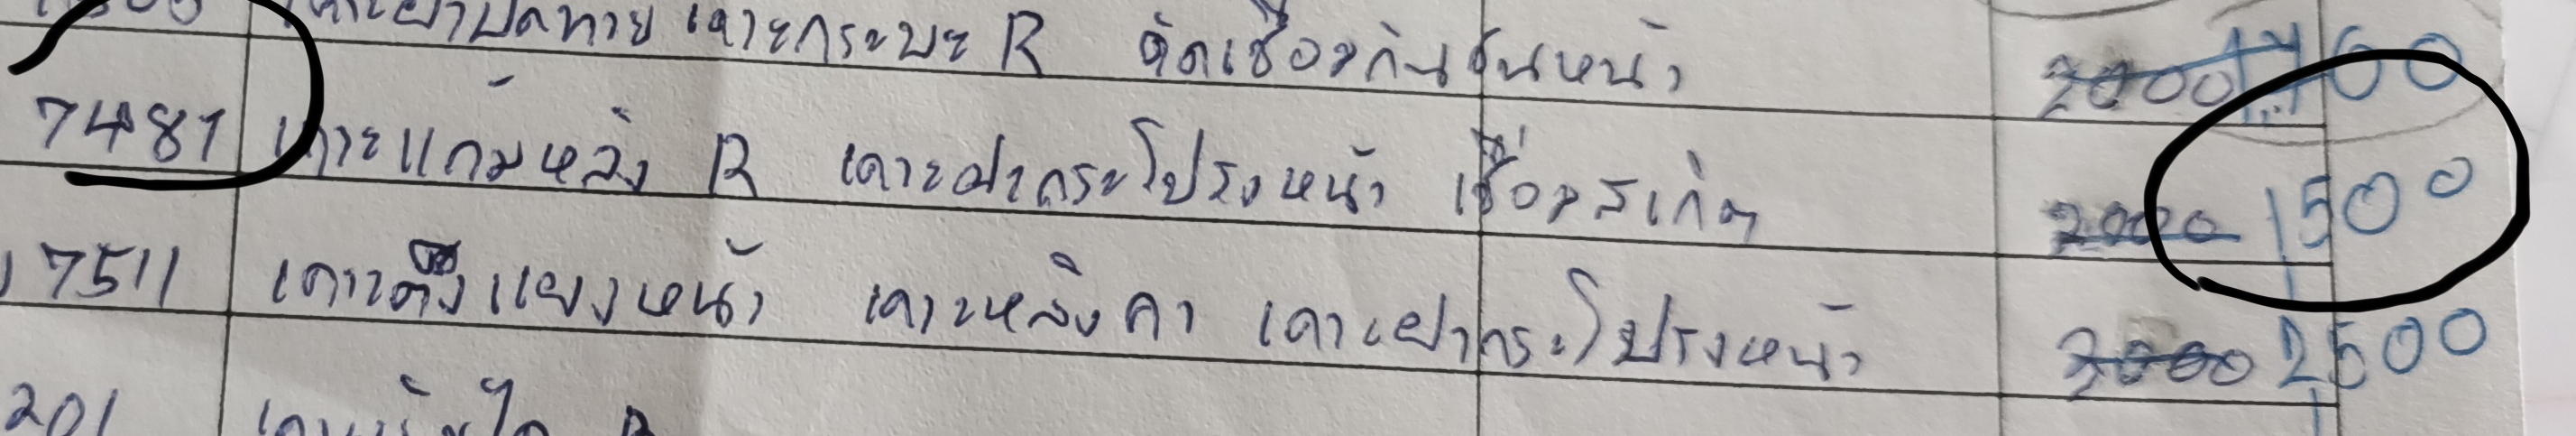 เคาะฝาปิดท้าย เคาะกระบะ R ตัดเชื่อมกันชนหน้า 2000 1,700
7481 เคาะแก้มหลัง R เคาะฝากระโปรงหน้า เชื่อมสเกิต 2000 1500
7511 เคาะดึงแผงหน้า เคาะหลังคา เคาะฝากระโปรงหน้า 2000 2500
201